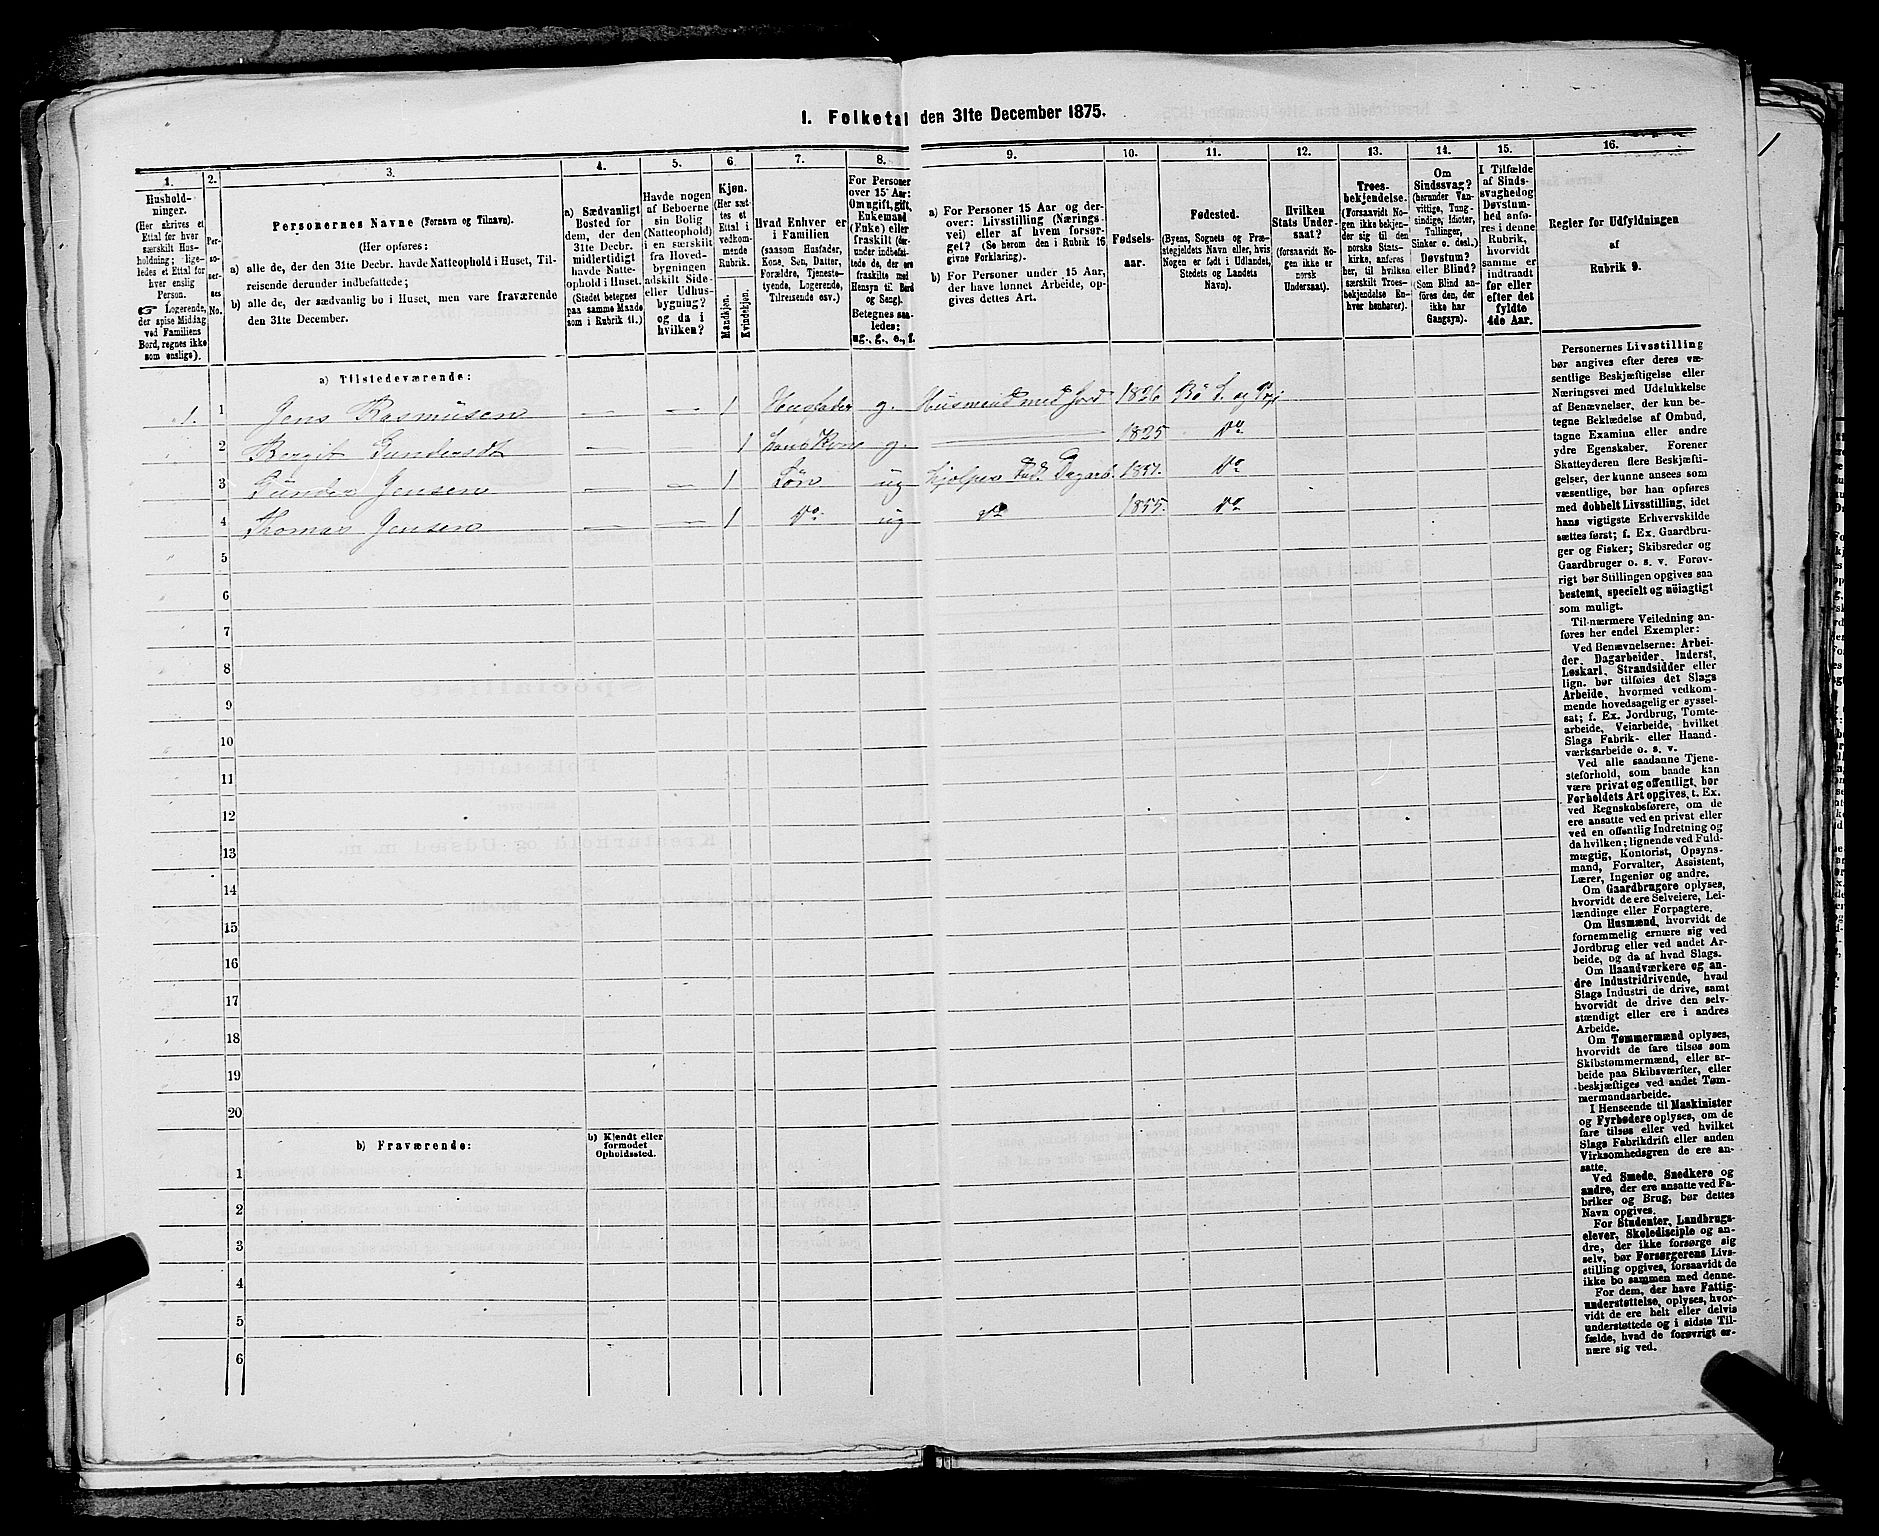 I. Folketal den 31te December 1875.
1.
Hushold-
ninger.
(Her skrives et
Ettal for hver
særskilt Hus-
holdning; lige-
ledes et Ettal for
hver enslig
Person.
☞ Logerende,
der spise Middag
ved Familiens
Bord, regnes ikke
som enslige).
2.
Per-
so-
ner-
nes
No.
3.
Personernes Navne (Fornavn og Tilnavn).
(Her opføres:
a) alle de, der den 31te Decbr. havde Natteophold i Huset, Til-
reisende derunder indbefattede;
b) alle de, der sædvanlig bo i Huset, men vare fraværende
den 31te December.
4.
a) Sædvanligt
Bosted for
dem, der den
31te Decbr.
midlertidigt
havde Natte-
ophold i Huset.
(Stedet betegnes
paa samme Maade
som i Rubrik 11.)
5.
Havde nogen
af Beboerne
sin Bolig
(Natteophold)
i en særskilt
fra Hoved-
bygningen
adskilt Side-
eller Udhus-
bygning?
og da i
hvilken?
6.
Kjøn.
(Her sæt-
tes et
Ettal i
vedkom-
mende
Rubrik.
Mandkjøn.
Kvindekjøn.
7.
Hvad Enhver er
i Familien
(saasom Husfader,
Kone, Søn, Datter,
Forældre, Tjeneste-
tyende, Logerende,
Tilreisende osv.)
8.
For Personer
over 15 Aar:
Om ugift, gift,
Enkemand
(Enke) eller
fraskilt (her-
under indbefat-
tede de, der ere
fraskilte med
Hensyn til Bord
og Seng).
Betegnes saa-
ledes:
ug., g., e., f.
9.
a) For Personer 15 Aar og der-
over: Livsstilling (Nærings-
vei) eller af hvem forsør-
get? (Se herom den i Rubrik 16
givne Forklaring).
b) For Personer under 15 Aar,
der have lønnet Arbeide, op-
gives dettes Art.
10.
Fødsels-
aar.
11.
Fødested.
(Byens, Sognets og Præ-
stegjeldets Navn eller, hvis
Nogen er født i Udlandet,
Stedets og Landets
Navn).
12.
Hvilken
Stats Under-
saat?
(forsaavidt No-
gen ikke er
norsk
Undersaat).
13.
Troes-
bekjendelse.
(Forsaavidt No-
gen ikke bekjen-
der sig til den
norske Stats-
kirke, anføres
her, til hvilken
særskilt Troes-
bekjendelse En-
hver henhører).
14.
Om
Sindssvag?
(herunder Van-
vittige, Tung-
sindige, Idioter,
Tullinger,
Sinker o. desl.)
Døvstum?
eller Blind?
(Som Blind an-
føres den, der
ikke har
Gangsyn).
15.
I Tilfælde
af Sinds-
svaghed og
Døvstum-
hed anfø-
res i denne
Rubrik,
hvorvidt
samme er
indtraadt
før eller
efter det
fyldte
4de Aar.
16.
Regler for Udfyldningen
af
Rubrik 9.
a) Tilstedeværende:
1. 1 Jens Rasmusen — — 1 Husfader g. Husmand med Jord 1826 Bö S. og Prgj
2 Bergit Gundersdt — — 1 hans Kone g. — 1825 Do
3 Gunder Jensen — — 1 Sön ug hjelper Fad. Dagarb. 1851. Do
4 Thomas Jensen — — 1 Do ug do 1855. Do
5
6
7
8
9
10
11
12
13
14
15
16
17
18
19
20
b) Fraværende:
b) Kjendt eller
formodet
Opholdssted.
1
2
3
4
5
6
Personernes Livsstilling
bør angives efter deres væ-
sentlige Beskjæftigelse eller
Næringsvei med Udelukkelse
af Benævnelser, der kun be-
tegne Beklædelse af Ombud,
tagne Examina eller andre
ydre Egenskaber. Forener
Skatteyderen flere Beskjæfti-
gelser, der kunne ansees som
væsentlige, bør han opføres
med dobbelt Livsstilling, idet
hans vigtigste Erhvervskilde
sættes først; f. Ex. Gaardbru-
ger og Fisker; Skibsreder og
Gaardbruger o. s. v. Forøv-
rigt bør Stillingen opgives saa
bestemt, specielt og nöiagtigt
som muligt.
Til nærmere Veiledning an-
føres her endel Exempler:
Ved Benævnelserne: Arbei-
der, Dagarbeider, Inderst,
Løskarl, Strandsidder eller
lign. bør tilføies det Slags
Arbeide, hvormed vedkom-
mende hovedsagelig er syssel-
sat; f. Ex. Jordbrug, Tomte-
arbeide, Veiarbeide, hvilket
Slags Fabrik- eller Haand-
værksarbeide o. s. v.
Ved alle saadanne Tjene-
steforhold, som baade kan
være privat og offentligt, bør
Forholdets Art opgives, t. Ex.
ved Regnskabsførere, om de
ere ansatte ved en privat eller
ved en offentlig Indretning og
da hvilken; lignende ved Fuld-
mægtig, Kontorist, Opsyns-
mand, Forvalter, Assistent,
Lærer, Ingeniør og andre.
Om Gaardbrugere oplyses,
hvorvidt de ere Selveiere, Lei-
lændinge eller Forpagtere.
Om Husmænd, hvorvidt de
fornemmelig ernære sig ved
Jordbrug eller ved andet Ar-
beide, og da af hvad Slags.
Om Haandværkere og an-
dre Industridrivende, hvad
Slags Industri de drive, samt
hvorvidt de drive den selv-
stændigt eller ere i andres
Arbeide.
Om Tømmermænd oplyses,
hvorvidt de fare tilsøs som
Skibstømmermænd, eller ar-
beide paa Skibsværfter, eller
beskjæftiges ved andet Tøm-
mermandsarbeide.
I Henseende til Maskinister
og Fyrbødere oplyses, om de
fare tilsøs eller ved hvilket
Slags Fabrikdrift eller anden
Virksomhedsgren de ere an-
satte.
Ved Smede, Snedkere og
andre, der ere ansatte ved Fa-
briker og Brug, bør dettes
Navn opgives.
For Studenter, Landbrugs-
elever, Skoledisciple og an-
dre, der ikke forsørge sig
selv, bør Forsørgerens Livs-
stilling opgives, forsaavidt de
ikke bo sammen med denne.
For dem, der have Fattig-
understøttelse, oplyses, hvor-
vidt de ere helt eller delvis
understøttede og i sidste Til-
fælde, hvad de forøvrigt er-
nære sig ved.